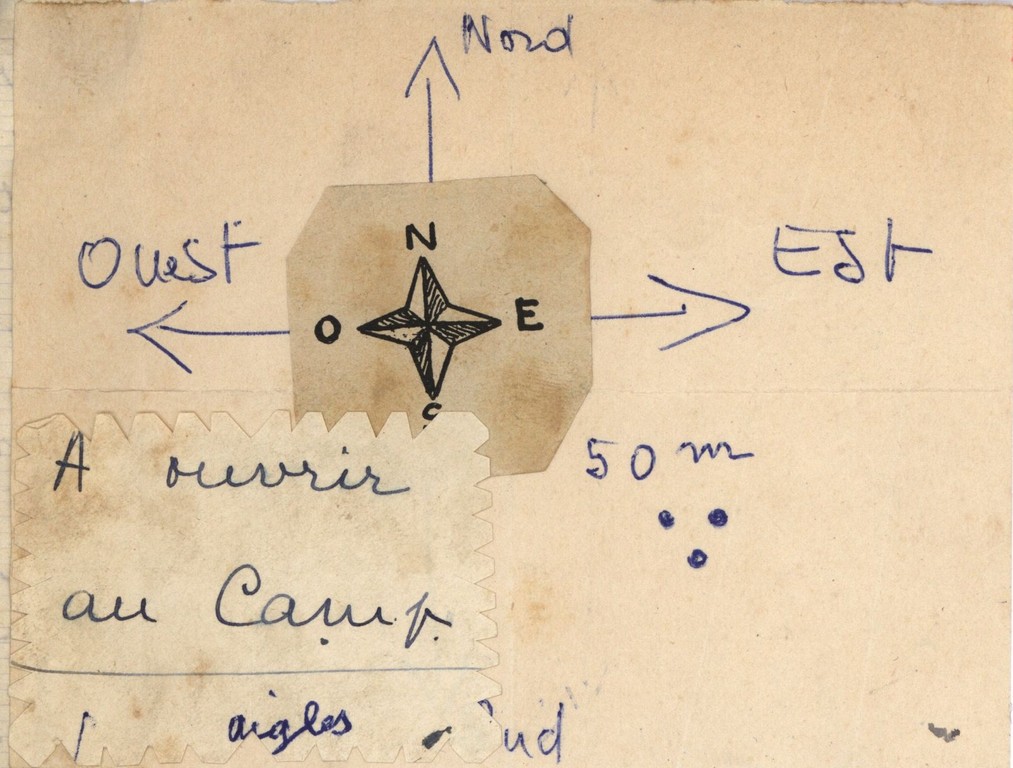 Nord
N
Ouest
Est
O
E
S
50 m
A ouvrir
au Camp.
aigles
ud